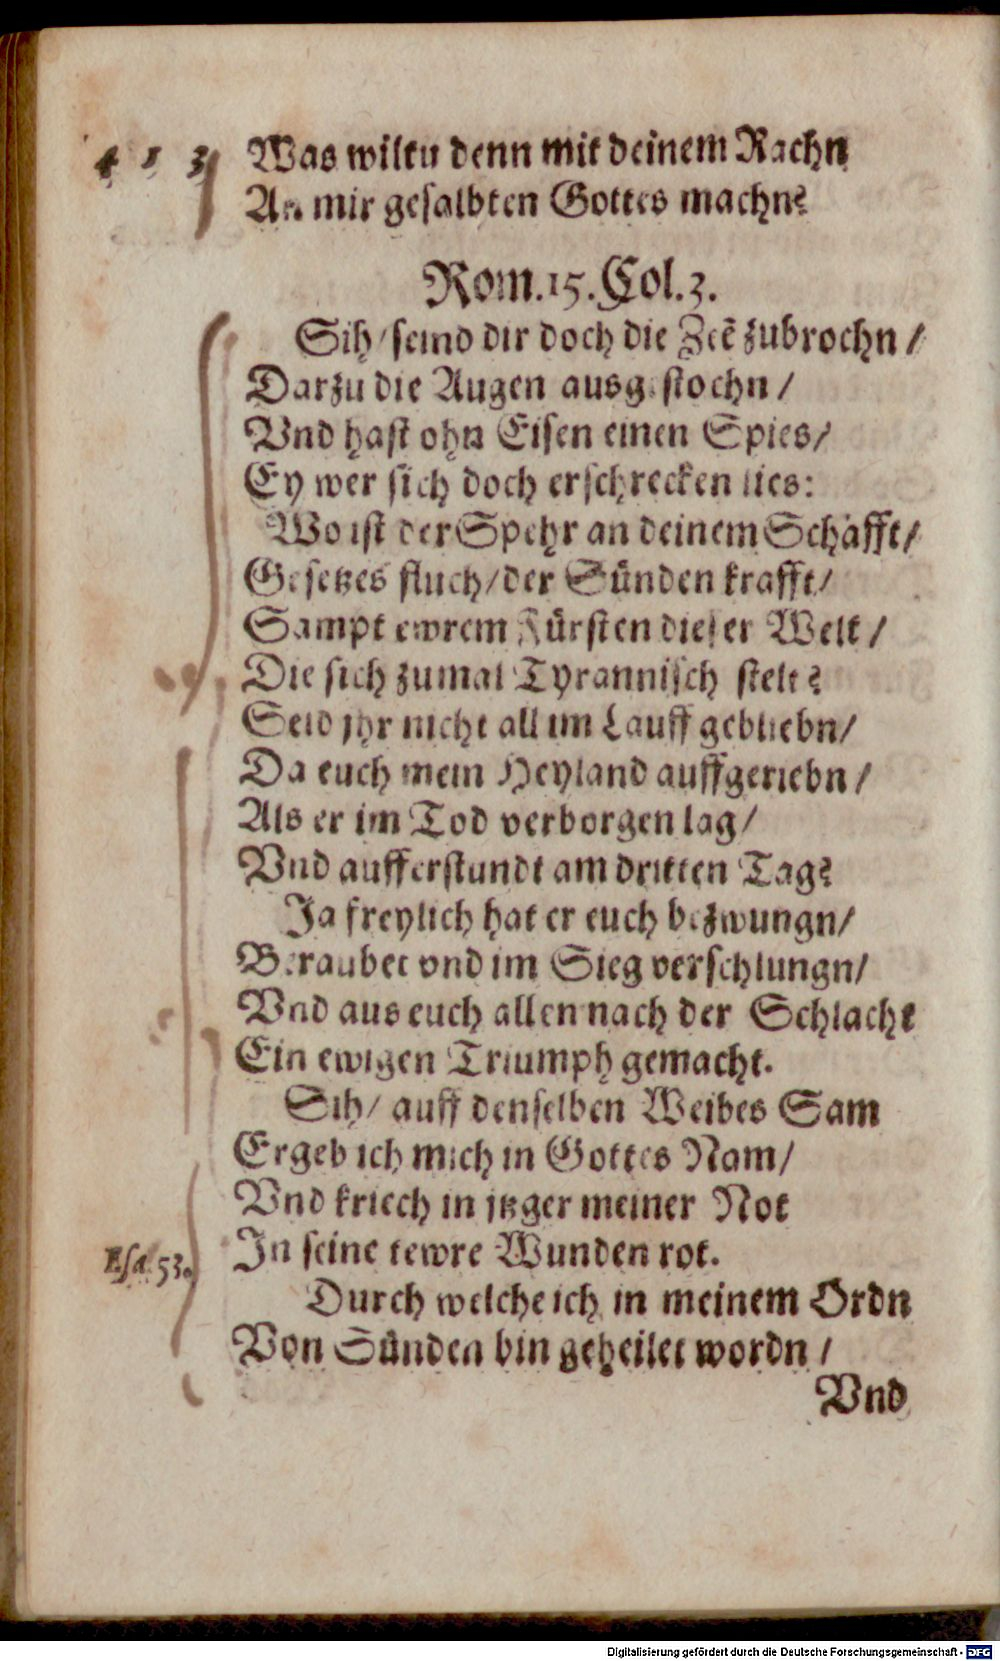 4 1 3 Was wiltu denn mit deinem Rachn
An mir gesalbten Gottes machn?
Rom. 15. Col. 3.
Sih / seind dir doch die Zeē zubrochn /
Darzu die Augen ausgestochn /
Vnd hast ohn Eisen einen Spies /
Ey wer sich doch erschrecken lies:
Wo ist der Spehr an deinem Schafft /
Gesetzes fluch / der Sünden krafft /
Sampt ewrem Fürsten dieser Welt /
Die sich zumal Tyrannisch stelt?
Seid jhr nicht all im Lauff gebliebn /
Da euch mein Heyland auffgeriebn /
Als er im Tod verborgen lag /
Vnd aufferstundt am dritten Tag?
Ja freylich hat er euch bezwungn /
Beraubet vnd im Sieg verschlungn /
Vnd aus euch allen nach der Schlacht
Ein ewigen Triumph gemacht.
Sih / auff denselben Weibes Sam
Ergeb ich mich in Gottes Nam /
Vnd kriech in jtzger meiner Not
Esa. 53. In seine tewre Wunden rot.
Durch welche ich in meinem Ordn
Von Sünden bin geheilet wordn /
Vnd
Digitalisierung gefördert durch die Deutsche Forschungsgemeinschaft - DFG